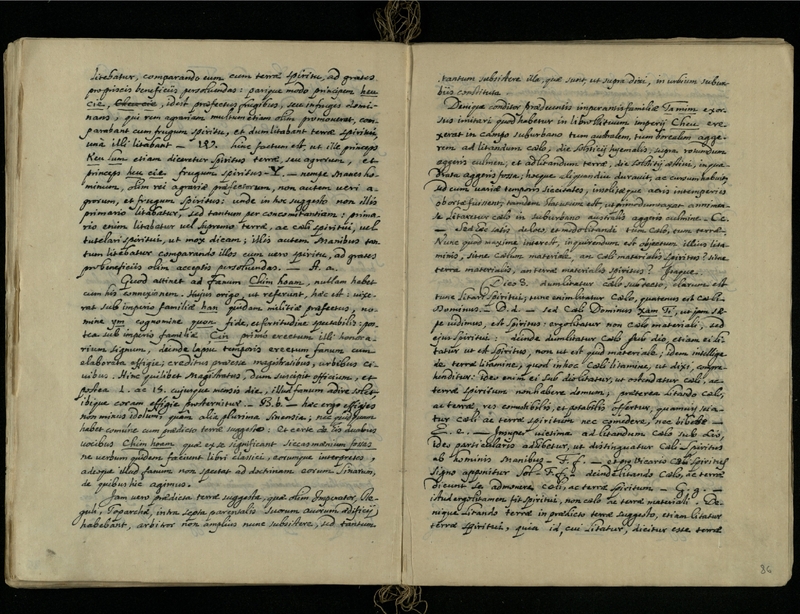 litabatur, comparando eum cum terræ spiritu, ad grates
pro priscis beneficiis persoluendas: parique modo principem heu
cie, Cheu cie, idest præfectus frugibus, seu infuges domi-
nans; qui rem agrariam multum etiam olim promoueret, com
parabant cum frugum spiritu, et dum litabant terræ spiritui,
una illi litabant — 187. hinc factum est, ut ille princeps
Keu lum etiam diceretur Spiritus terræ seu agrorum, et
princeps heu cie frugum spiritus — Y. — nempe Manes ho-
minum, olim rei agrariæ præfectorum, non autem veri a-
grorum, et frugum Spiritus: unde in hoc suggesto non illis
primario litabatur, sed tantum per concomitantiam: prima-
rio enim litabatur vel Supremo terræ, ac cæli spiritui, vel
tutelari spiritui, ut mox dicam; illis autem Manibus tan
tum litabatur comparando illos cum vero spiritu, ad grates
pro beneficiis olim acceptis persoluendas. — A. a.
Quod attinet ad fanum Chim hoam, nullam habet
cum his connexionem. Huius origo, ut referunt, hæc est: vixe-
rat sub imperio familiæ han quidam militiæ præfectus, no-
mine ym cognomine yuon fide, et fortitudine spectabilis: pos
tea sub imperio familiæ Cin primo erectum illi honora-
rium signum, deinde lapsu temporis erectum fanum cum
elaborata effigie; creditus præesse magistratibus, urbibus ci-
uibus. Hinc quilibet Magistratus, dum suscipit officium, et
postea 1. ac 15. cuiusque mensis die, illud fanum adire solet
ibique coram effigie prosternitur — B. b. — hæc ergo effigies
non minus idolum, quam alia plurima Sinensia; nec quidquam
habet comune cum prædicto terræ suggesto: Et certe de his duabus
vocibus Chim hoam quæ ex se significant siccas mænium fosses
ne verbum quidem faciunt libri classici, eorumque interpretes,
adeoque illud fanum non spectat ad doctrinam eorum Sinarum,
de quibus hic agimus.
Jam vero prædicta terræ suggesta, quæ olim Imperator, Re-
guli, Toparchæ, intra septa parentalis suorum auorum ædificij
habebant, arbitror non amplius nunc subsistere, sed tantum
tantum subsistere illa, quæ sunt, ut supra dixi, in urbium subur
biis constituta.
Denique conditor præcedentis imperantis familiæ Tamim exor-
sus imitari quod habetur in libro Rituum imperij Cheu ere-
xerat in campo suburbano tum australem, tum borealem agge-
rem ad litandum cælo, die Solstitij hyemalis, supra rotundum
aggeris culmen, et ad litandum terræ, die Solstitij æstiui, in qua-
drata aggeris fossa; hocque aliquandiu durauit, ac cursum habuit;
sed cum uariæ temporis siccitates, insolitæque aeris intemperies
obortæ fuissent; tandem statutum est, ut primo duntaxat anni men-
se litaretur cælo in suburbano australis aggeris culmine. C. c.
— Sed hæc satis de loco, et modo litandi tum cælo, tum terræ.
Nunc quod maxime interest, inquirendum est objectum illius lita-
minis, siue cælum materiale, an cæli materialis spiritus? siue
terra materialis, an terræ materialis spiritus? Itaque.
Dico 3. dum litatur cælo sub dio, clarum est
tunc litari spiritui; tunc enim litatur cælo, quatenus est cæli
Dominus — D. d. — sed cæli Dominus Xam Ti, ut jam sæ-
pe uidimus, est spiritus: ergo litatur non cælo materiali, sed
ejus spiritui: deinde dum litatur cælo sub dio, etiam ei li-
tatur ut est spiritus, non ut est quid materiale; idem intellige
de terræ litamine, quod in hoc cæli litamine, ut dixi, compre-
henditur: ideo enim ei sub dio litatur, ut ostendatur cæli, ac
terræ spiritum non habere domum; præterea litando cælo,
ac terræ, res comestibilis, et potabilis offertur, quamuis scia-
tur cæli ac terræ spiritum nec comedere, nec bibere —
E. e. — semper uictima ad litandum cælo sub dio,
ideo particulario adoletur, ut distinguatur cæli spiritus
ab hominis Manibus — F. f. — et pro Vicario cæli spiritus
signo apponitur Sol — F. f. 2. deinde litando cælo, ac terræ
dicunt se admouere cæli, ac terræ spiritum — G. g. —
istud ergo litamen fit spiritui, non cælo ac terræ materiali. De-
nique litando terræ in prædicto terræ suggesto, etiam litatur
terræ spiritui, quia id, cui litatur, dicitur esse terræ
86